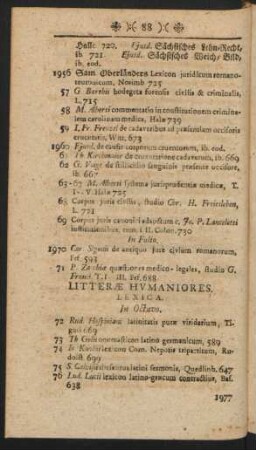 88
Halle 720. Ejusd. Sächsisches Lehn-Recht,
ib 721. Ejusd. Sächsisches Weich-Bild,
ib. eod.
1956 Sam. Oberländers Lexicon juridicum romano-
teutonicum, Norimb 725
57 G Beyeri hodegeta forensis civilis & criminalis,
L. 715
58 M. Alberti commentatio in constitutionem crimina-
lem carolinam medica, Halæ 739
59 I. Fr. Frenzel de cadaveribus
Witt. 673
1960 Ejusd. de ib. eod.
61 Th Kirchmaier de cruentatione cadaverum, ib. 669
62 G. Voge de stillicidio sanguinis præsente occisore,
ib. 667
63-67 M. Alberti systema jurisprudentiæ medicæ, T.
I-V. Halæ 725
68 Corpus juris civilis, studio Chr. H. Freiesleben,
L. 721
69 Corpus juris canonici c. Jo. P. Lancelotti
institutionibus, tom. I II. Colon. 730
In Folio.
1970 Car Sigonii de antiquo jure civium romanorum,
Frf. 593
71 P. Zacchiæ quæstiones medico-legales, studio G.
Franci. T. I III. Frf. 688.
LITTERÆ HVMANIORES.
LEXICA.
In Octavo.
72 Rud Hospiniani latinitatis puræ viridarium, Ti-
guri 669
73 Th onomasticon latino germanicum, 589
74 lexicon Corn. Nepotis tripartitum, Ru-
dolst 699
75 S. latini sermonis, Quedlinb. 647
76 Lud. Lucii lexicon latino-græcum contractius, Bas.
638
1977